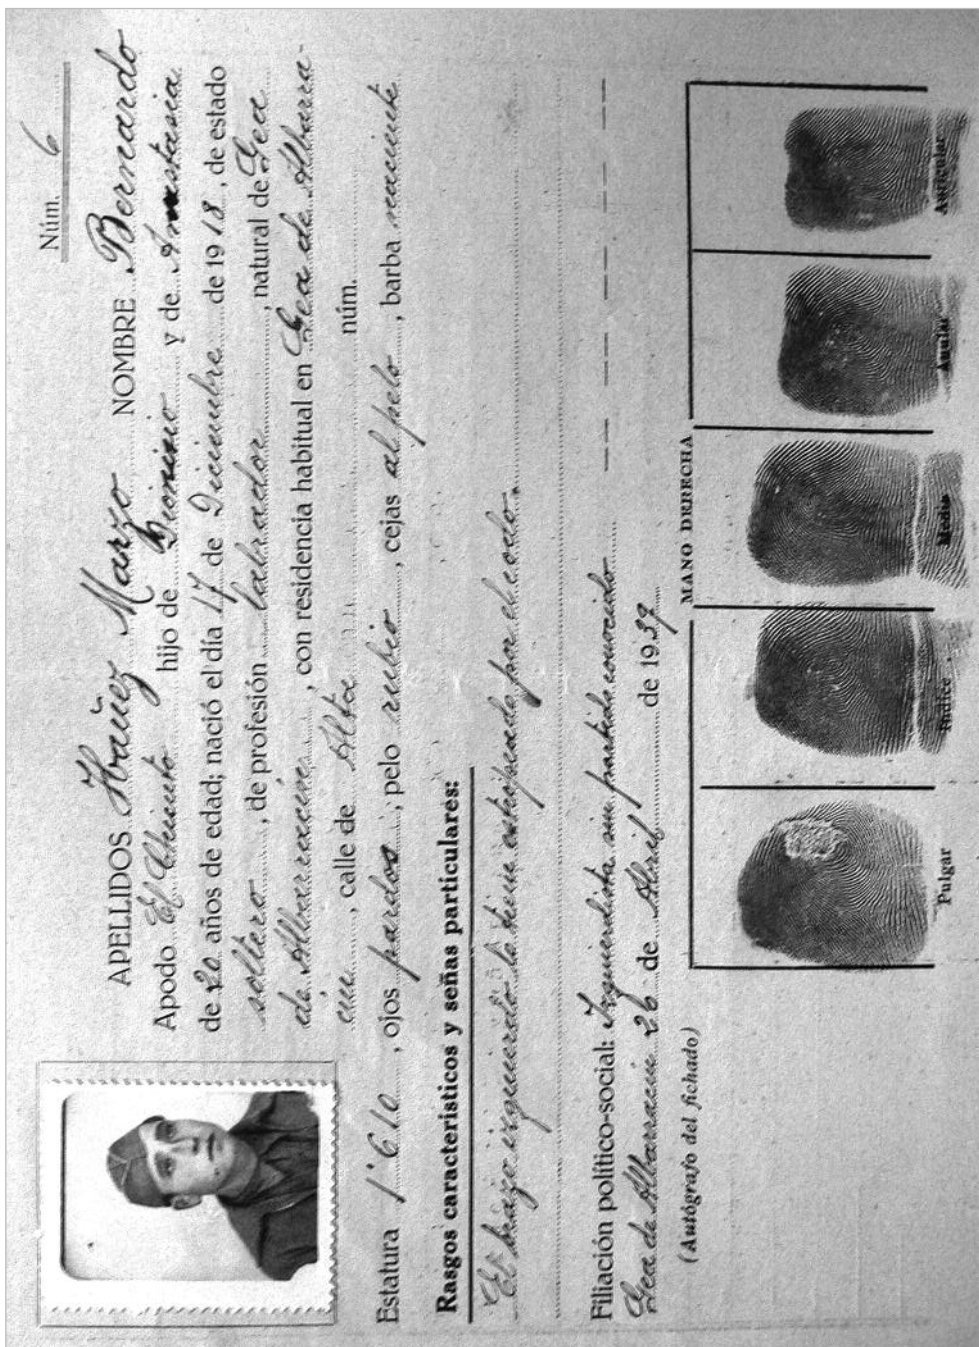 Núm. 6
APELLIDOS Ibañez Marzo NOMBRE Bernardo
Apodo El Quinto hijo de Dionisio y de Anastasia
de 20 años de edad; nació el día 17 de Diciembre de 1918, de estado
soltero, de profesión labrador, natural de Gea
de Albarracin, con residencia habitual en Gea de Albarra-
cin, calle de Alta núm.
Estatura 1'610, ojos pardos, pelo rubio, cejas al pelo, barba naciente
Rasgos característicos y señas particulares:
El brazo izquierdo lo tiene estropeado por el codo.
Filiación político-social: Izquierdista sin partido conocido
Gea de Albarracin 26 de Abril de 1939
(Autógrafo del fichado)
MANO DERECHA
Pulgar Indice Medio Anular Auricular